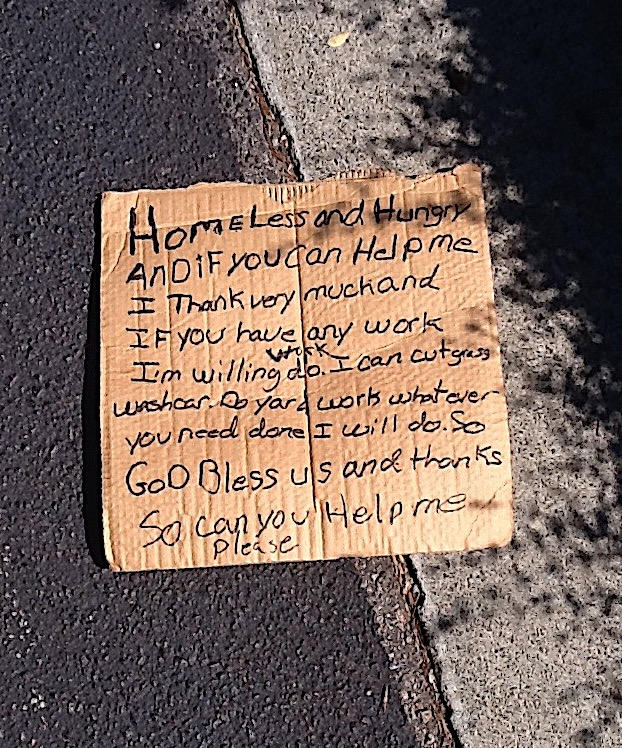 HomeLess and Hungry
AnD iF you Can Help me
I Thank very much and
IF you have any work
work
I'm willing do. I can cut grass
wash car. Do yard work what ever
you need done I will do. So
GoD Bless us and thanks
So can you Help me
please